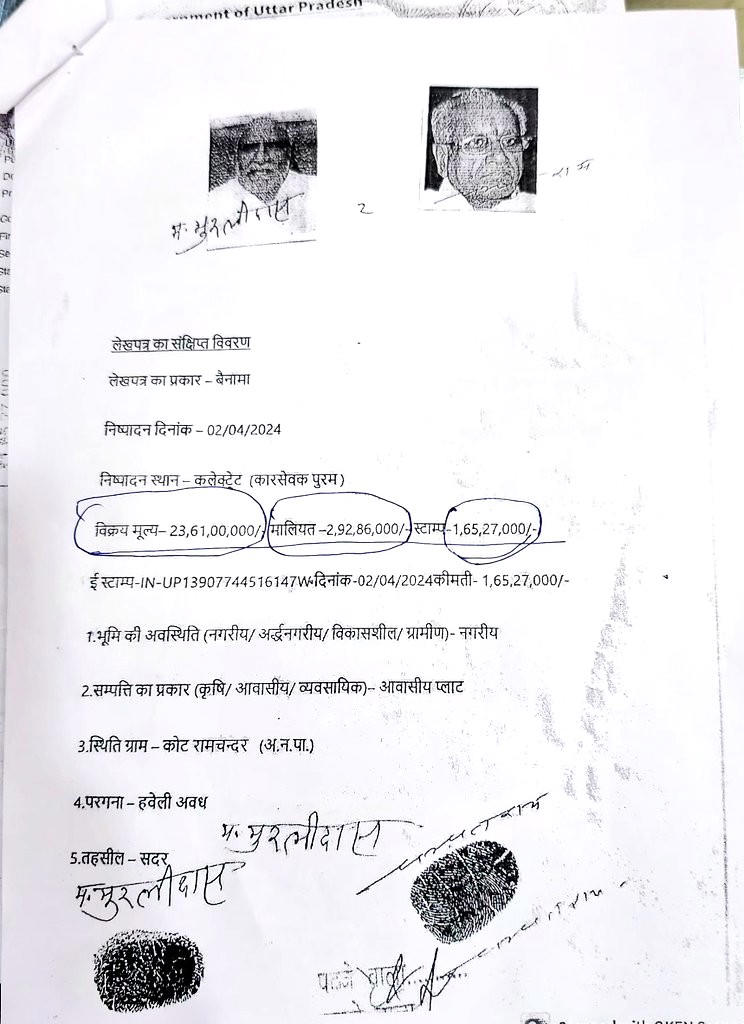 ernment of Uttar Pradesh
म. मुरलीदास
2
राम
लेखपत्र का संक्षिप्त विवरण
लेखपत्र का प्रकार – बैनामा
निष्पादन दिनांक – 02/04/2024
निष्पादन स्थान – कलेक्ट्रेट (कारसेवक पुरम)
विक्रय मूल्य– 23,61,00,000/- मालियत –2,92,86,000/- स्टाम्प-1,65,27,000/-
ई स्टाम्प-IN-UP13907744516147W-दिनांक-02/04/2024कीमती- 1,65,27,000/-
1.भूमि की अवस्थिति (नगरीय/ अर्द्धनगरीय/ विकासशील/ ग्रामीण)- नगरीय
2.सम्पत्ति का प्रकार (कृषि/ आवासीय/ व्यवसायिक)– आवासीय प्लाट
3.स्थिति ग्राम – कोट रामचन्दर (अ.न.पा.)
4.परगना – हवेली अवध
म. मुरलीदास
5.तहसील – सदर
म. मुरलीदास